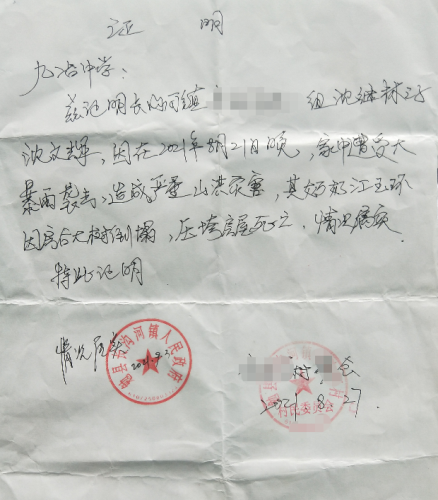 证 明
九冶中学:
兹证明长沟河镇 组沈继林之子
沈文辉,因在2021年8月21日晚,家中遭受大
暴雨袭击,造成严重山洪灾害,其奶奶江玉环
因房后大树倒塌,压垮房屋死亡,情况属实
特此证明
情况属实
2021.9.2
勉县长沟河镇人民政府
村 会
村民委员会
2021.8.27